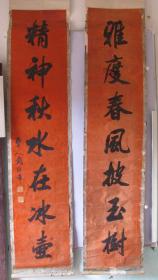 雅度春風披玉樹
精神秋水在冰壺